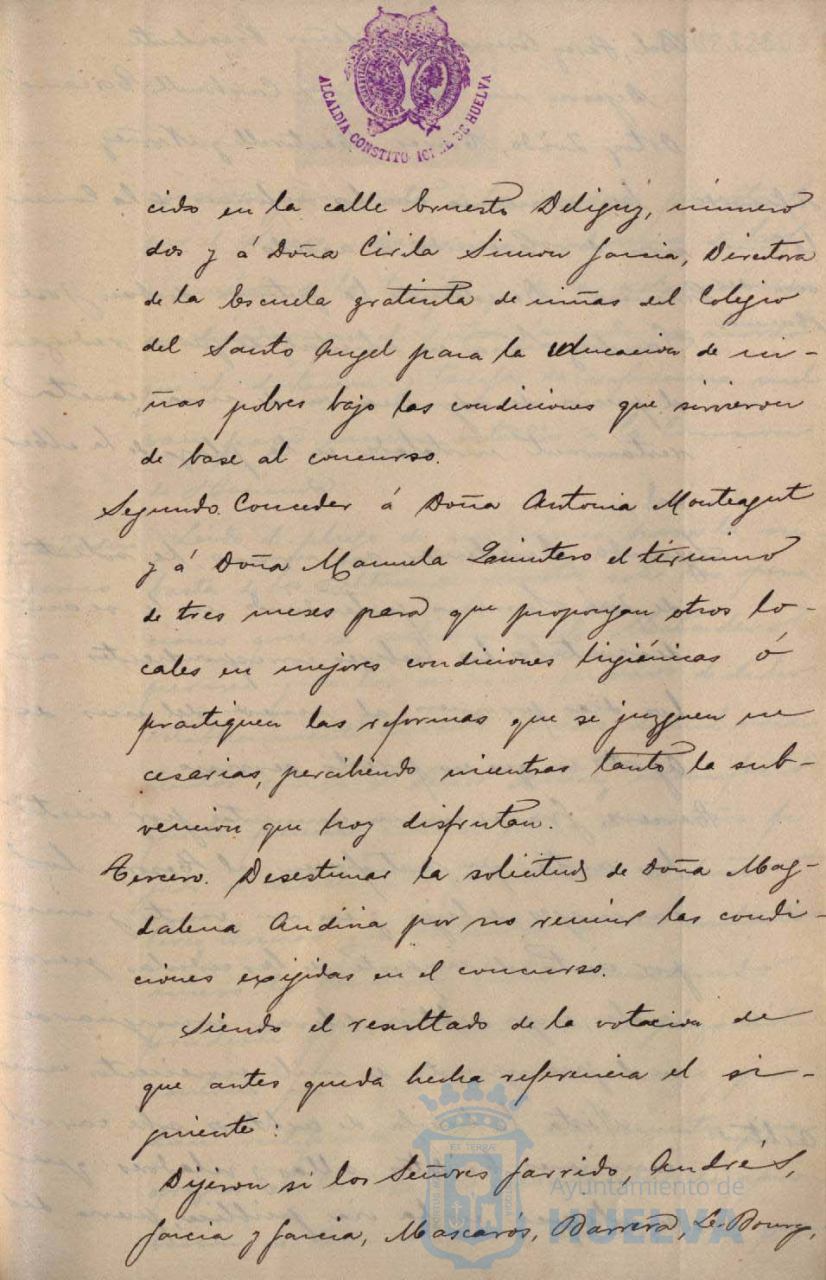 ALCALDIA CONSTITUCIONAL DE HUELVA
cido en la calle Ernesto Deligny, número
dos y á Doña Cirila Simon Garcia, Directora
de la Escuela gratuita de niñas del Colegio
del Santo Angel para la educacion de ni-
ñas pobres bajo las condiciones que sirvieron
de base al concurso.
Segundo. Conceder á Doña Antonia Monteagut
y á Doña Manuela Quintero el término
de tres meses para que propongan otros lo-
cales en mejores condiciones higiénicas ó
practiquen las reformas que se juzguen ne
cesarias, percibiendo mientras tanto la sub-
vencion que hoy disfrutan.
Tercero. Desestimar la solicitud de Doña Mag-
dalena Andivia por no reunir las condi-
ciones exijidas en el concurso.
Siendo el resultado de la votacion de
que antes queda hecha referencia el si-
guiente:
Dijeron si los Señores Garrido, Andrés,
Garcia y Garcia, Mascarós, Barrera, Le Bourg,
Ayuntamiento de
HUELVA